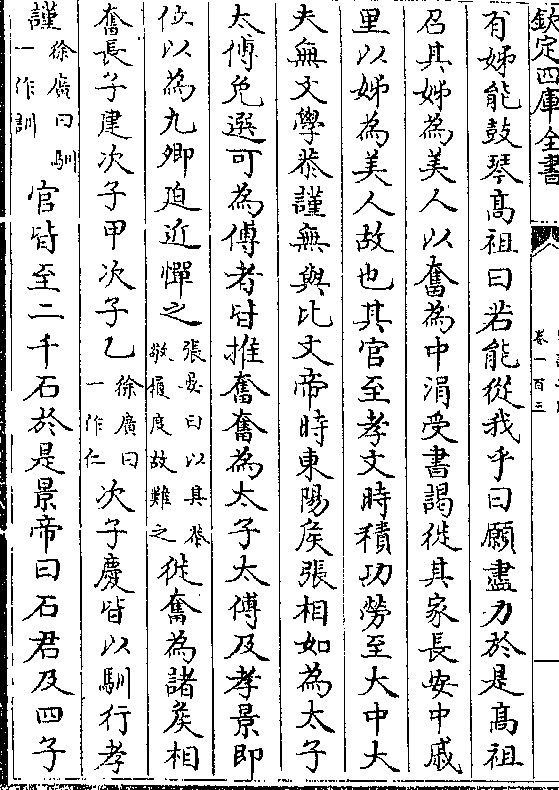 欽定四庫全書
卷一百三
有姊能鼓琴高祖曰若能從我乎曰願盡力於是高祖
召其姊為美人以奮為中涓受書謁徙其家長安中戚
里以姊為美人故也其官至孝文時積功勞至大中大
夫無文學恭謹無與比文帝時東陽侯張相如為太子
太傅免選可為傅者皆推奮奮為太子太傅及孝景即
位以為九卿迫近憚之張晏曰以其恭敬履度故難之徙奮為諸侯相
奮長子建次子甲次子乙徐廣曰一作仁次子慶皆以馴行孝
謹徐廣曰馴一作訓官皆至二千石於是景帝曰石君及四子